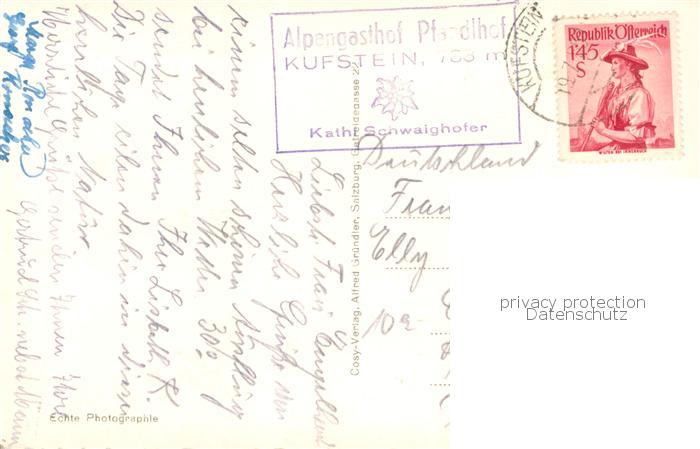 Alpengasthof Pfandlhof
KUFSTEIN, 783 m
Kathi Schwaighofer
KUFSTEIN
Republik Österreich
1'45
S
WILTEN BEI INNSBRUCK
Deutschland
Frau
Elly
10a
privacy protection
Datenschutz
Cosy-Verlag, Alfred Gründler, Salzburg, Getreidegasse 22
Liebste Frau
Herzliche Grüße von
einem selten schönen Ausflug
bei herrlichem Wetter 30°
sendet Ihnen Ihre Lisbeth K.
Die Tage eilen dahin in dieser
herrlichen Natur
Herzliche Grüße senden Ihnen Ihre
Echte Photographie